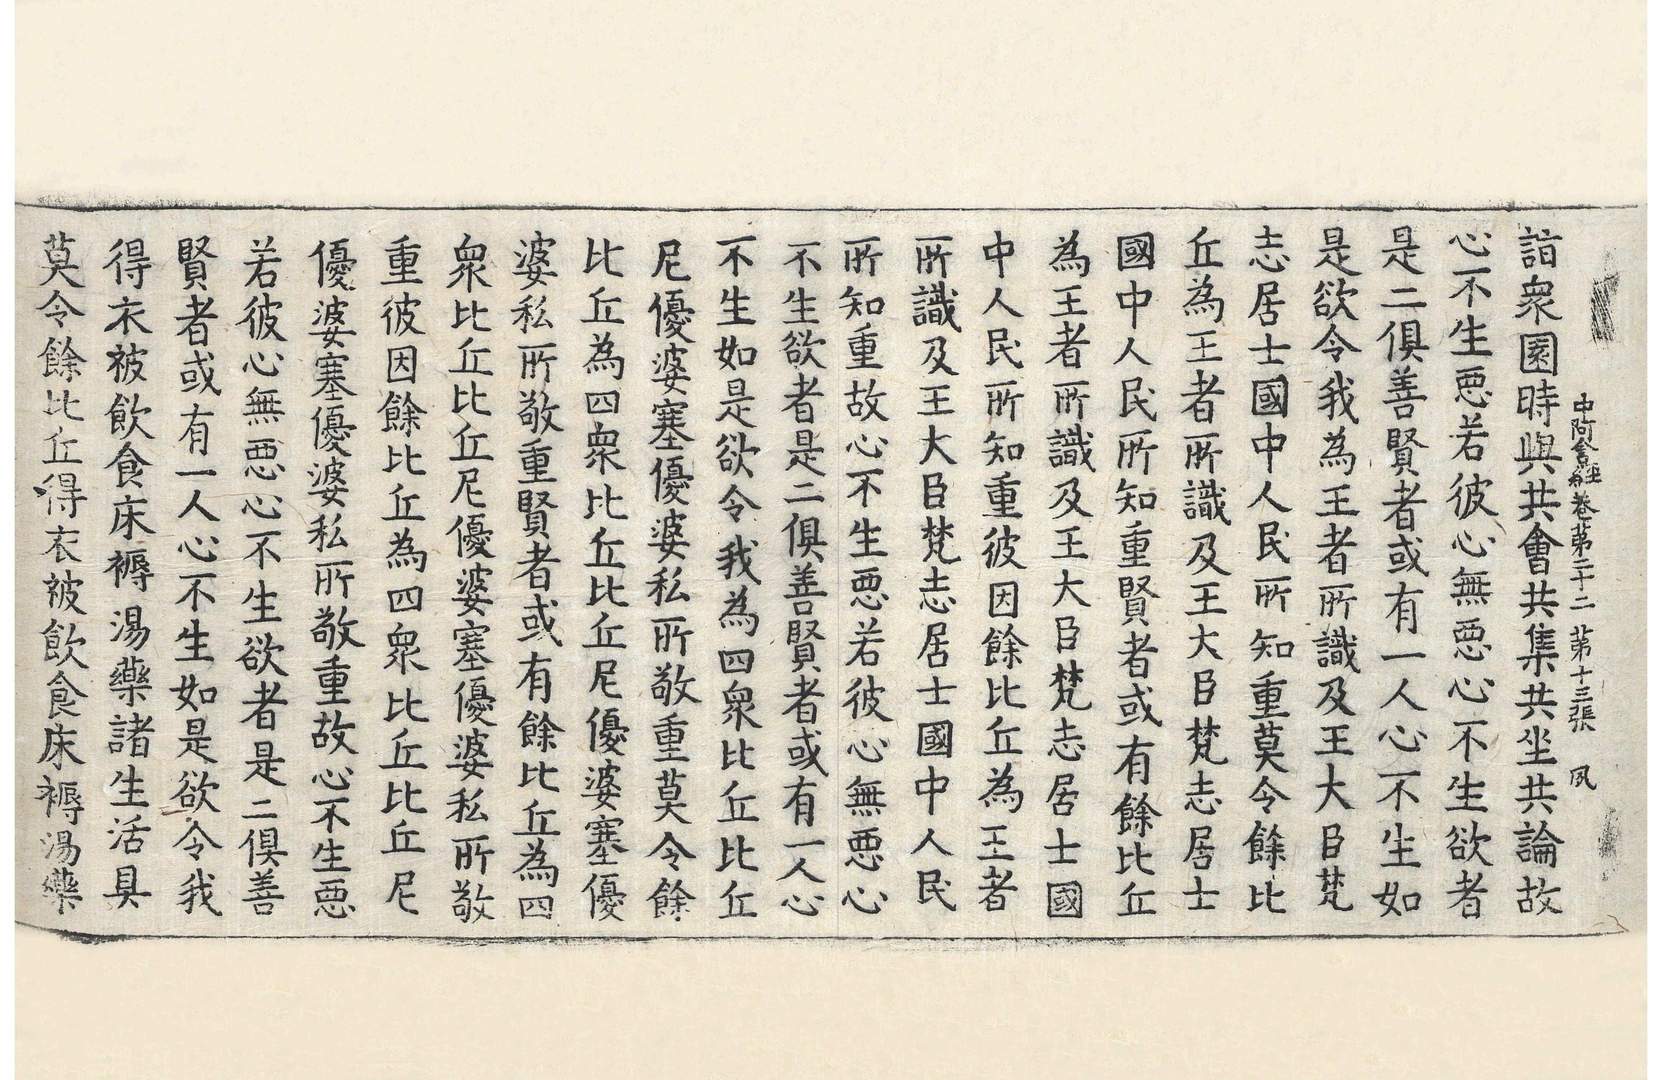 中阿含經卷第二十二 第十三張 夙
詣衆園時與共會共集共坐共論故
心不生惡若彼心無惡心不生欲者
是二俱善賢者或有一人心不生如
是欲令我為王者所識及王大臣梵
志居士國中人民所知重莫令餘比
丘為王者所識及王大臣梵志居士
國中人民所知重賢者或有餘比丘
為王者所識及王大臣梵志居士國
中人民所知重彼因餘比丘為王者
所識及王大臣梵志居士國中人民
所知重故心不生惡若彼心無惡心
不生欲者是二俱善賢者或有一人心
不生如是欲令我為四衆比丘比丘
尼優婆塞優婆私所敬重莫令餘
比丘為四衆比丘比丘尼優婆塞優
婆私所敬重賢者或有餘比丘為四
衆比丘比丘尼優婆塞優婆私所敬
重彼因餘比丘為四衆比丘比丘尼
優婆塞優婆私所敬重故心不生惡
若彼心無惡心不生欲者是二俱善
賢者或有一人心不生如是欲令我
得衣被飲食床褥湯藥諸生活具
莫令餘比丘得衣被飲食床褥湯藥